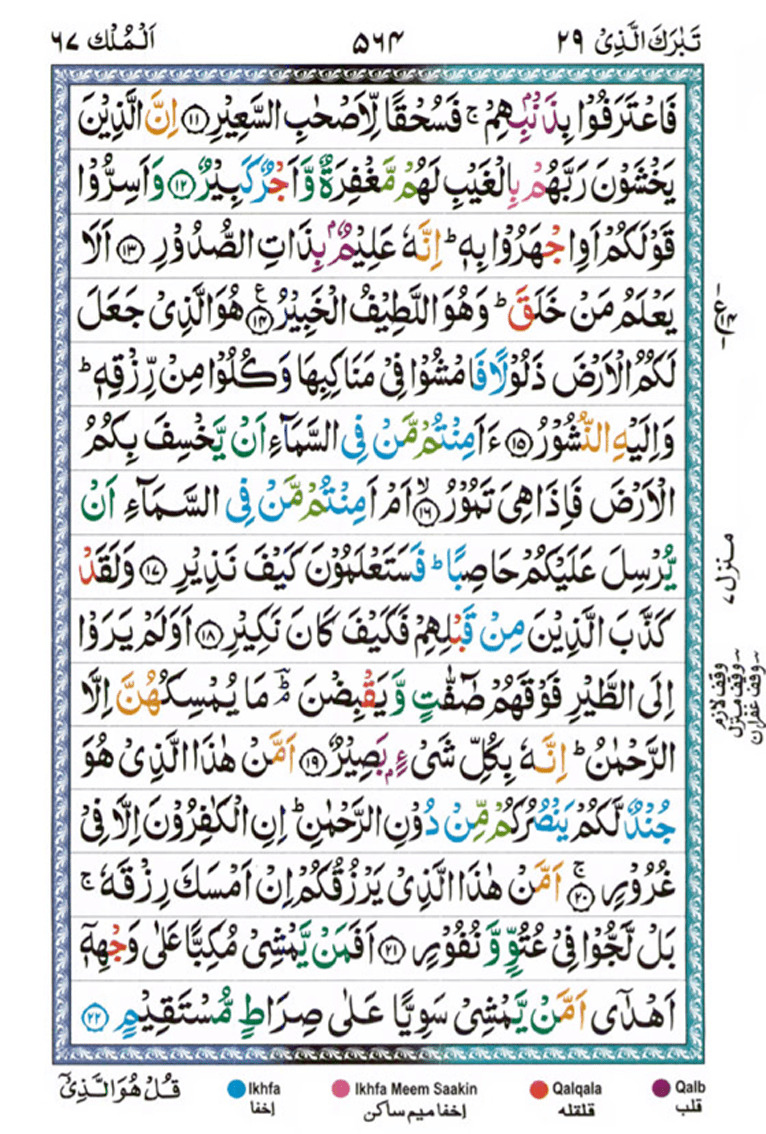 تَبٰرَكَ الَّذِىْ ٢٩ ۵۶۴ اَلْمُلْك ٦٧
فَاعْتَرَفُوْا بِذَنْۢبِهِمْ ۚ فَسُحْقًا لِّاَصْحٰبِ السَّعِيْرِ ﴿۱۱﴾ اِنَّ الَّذِيْنَ
يَخْشَوْنَ رَبَّهُمْ بِالْغَيْبِ لَهُمْ مَّغْفِرَةٌ وَّاَجْرٌ كَبِيْرٌ ﴿۱۲﴾ وَاَسِرُّوْا
قَوْلَكُمْ اَوِ اجْهَرُوْا بِهٖ ؕ اِنَّهٗ عَلِيْمٌۢ بِذَاتِ الصُّدُوْرِ ﴿۱۳﴾ اَلَا
يَعْلَمُ مَنْ خَلَقَ ؕ وَهُوَ اللَّطِيْفُ الْخَبِيْرُ ﴿۱۴﴾ هُوَ الَّذِىْ جَعَلَ
لَكُمُ الْاَرْضَ ذَلُوْلًا فَامْشُوْا فِىْ مَنَاكِبِهَا وَكُلُوْا مِنْ رِّزْقِهٖ ؕ
وَاِلَيْهِ النُّشُوْرُ ﴿۱۵﴾ ءَاَمِنْتُمْ مَّنْ فِى السَّمَآءِ اَنْ يَّخْسِفَ بِكُمُ
الْاَرْضَ فَاِذَا هِىَ تَمُوْرُ ۙ ﴿۱۶﴾ اَمْ اَمِنْتُمْ مَّنْ فِى السَّمَآءِ اَنْ
يُّرْسِلَ عَلَيْكُمْ حَاصِبًا ؕ فَسَتَعْلَمُوْنَ كَيْفَ نَذِيْرِ ﴿۱۷﴾ وَلَقَدْ
كَذَّبَ الَّذِيْنَ مِنْ قَبْلِهِمْ فَكَيْفَ كَانَ نَكِيْرِ ﴿۱۸﴾ اَوَلَمْ يَرَوْا
اِلَى الطَّيْرِ فَوْقَهُمْ صٰٓفّٰتٍ وَّيَقْبِضْنَ ؔۘ مَا يُمْسِكُهُنَّ اِلَّا
الرَّحْمٰنُ ؕ اِنَّهٗ بِكُلِّ شَىْءٍۭ بَصِيْرٌ ﴿۱۹﴾ اَمَّنْ هٰذَا الَّذِىْ هُوَ
جُنْدٌ لَّكُمْ يَنْصُرُكُمْ مِّنْ دُوْنِ الرَّحْمٰنِ ؕ اِنِ الْكٰفِرُوْنَ اِلَّا فِىْ
غُرُوْرٍ ۚ ﴿۲۰﴾ اَمَّنْ هٰذَا الَّذِىْ يَرْزُقُكُمْ اِنْ اَمْسَكَ رِزْقَهٗ ۚ
بَلْ لَّجُّوْا فِىْ عُتُوٍّ وَّنُفُوْرٍ ﴿۲۱﴾ اَفَمَنْ يَّمْشِىْ مُكِبًّا عَلٰى وَجْهِهٖۤ
اَهْدٰٓى اَمَّنْ يَّمْشِىْ سَوِيًّا عَلٰى صِرَاطٍ مُّسْتَقِيْمٍ ﴿۲۲﴾
ع ۱۴
منزل ۷
وقف لازم
وقف منزل
وقف غفران
قُلْ هُوَ الَّذِىْۤ
Ikhfa Ikhfa Meem Saakin Qalqala Qalb
إخفا إخفا میم ساكن قلقله قلب